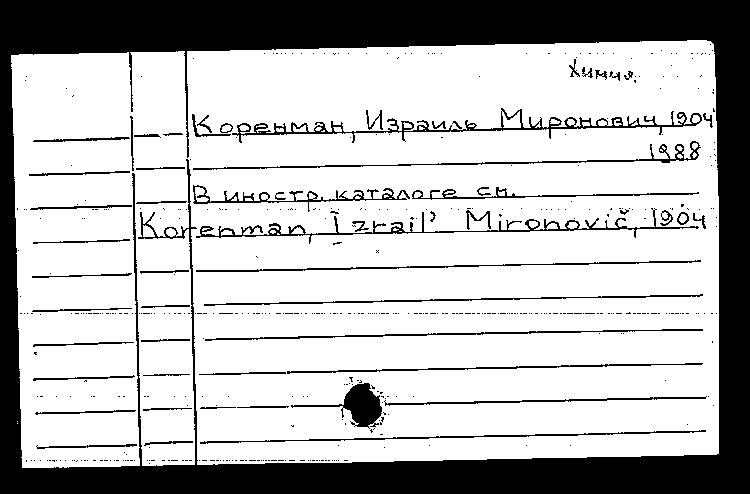 Химия.
Коренман, Израиль Миронович, 1904
1988
В иностр. каталоге см.
Korenman, Izrail' Mironovič, 1904